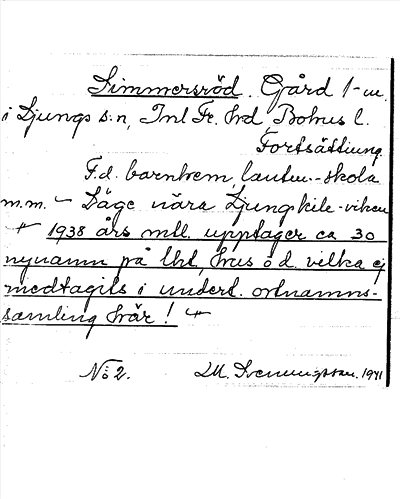 Simmersröd. Gård 1-m.
i Ljungs s:n, Inl Fr. hrd Bohus l.
Fortsättning.
F.d. barnhem, lantm.-skola
m.m. ~ Läge nära Ljungskile-viken
1938 års mtl. upptager ca 30
nynamn på lht, hus o d. vilka ej
medtagits i underl. ortnamns-
samling här!
No 2. D.M. Svenningsson. 1941